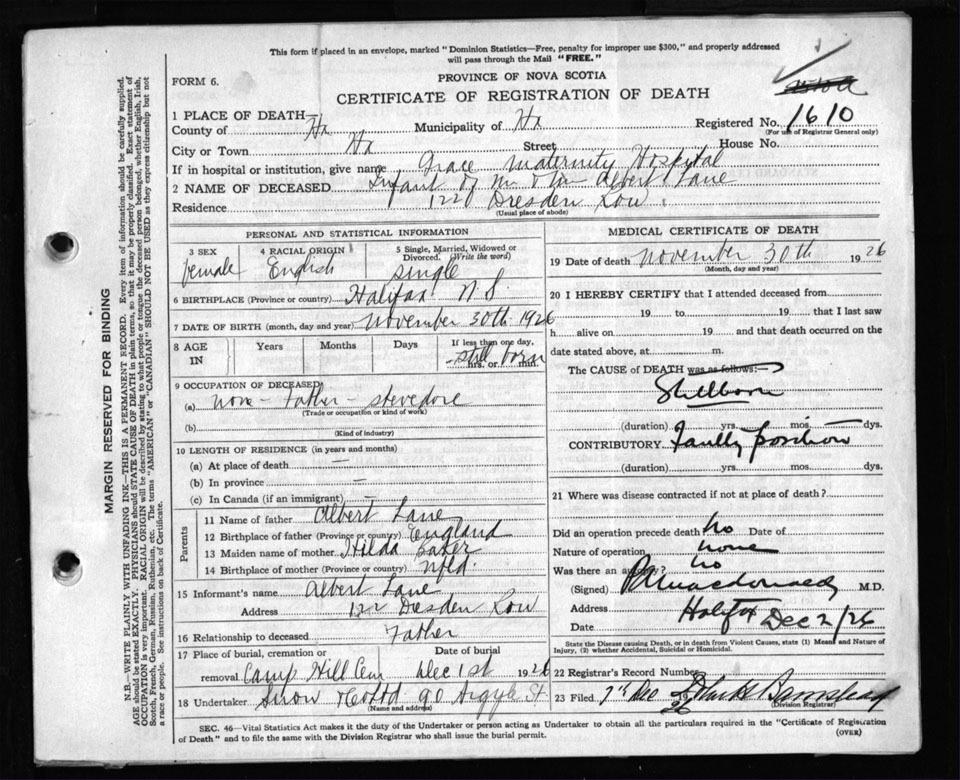 This form if placed in an envelope, marked "Dominion Statistics—Free, penalty for improper use $300," and properly addressed
will pass through the Mail "FREE."
PROVINCE OF NOVA SCOTIA
FORM 6.
CERTIFICATE OF REGISTRATION OF DEATH
1 PLACE OF DEATH—
County of Hx Municipality of Hx Registered No. 1610
(For use of Registrar General only)
City or Town Hx Street House No.
If in hospital or institution, give name Grace Maternity Hospital
2 NAME OF DECEASED Infant of Mr & Mrs Albert Lane
Residence 122 Dresden Row
(Usual place of abode)
PERSONAL AND STATISTICAL INFORMATION
3 SEX female
4 RACIAL ORIGIN English
5 Single, Married, Widowed or Divorced. (Write the word) single
6 BIRTHPLACE (Province or country) Halifax N.S.
7 DATE OF BIRTH (month, day and year) November 30th 1926
8 AGE IN Years Months Days If less than one day, hrs. or min. still born
9 OCCUPATION OF DECEASED
(a) none - Father - stevedore
(Trade or occupation or kind of work)
(b)
(Kind of industry)
10 LENGTH OF RESIDENCE (in years and months)
(a) At place of death —
(b) In province —
(c) In Canada (if an immigrant) —
Parents
11 Name of father Albert Lane
12 Birthplace of father (Province or country) England
13 Maiden name of mother Hilda Baker
14 Birthplace of mother (Province or country) Nfld.
15 Informant's name Albert Lane
Address 122 Dresden Row
16 Relationship to deceased Father
17 Place of burial, cremation or removal Camp Hill Cem Date of burial Dec 1st 1926
18 Undertaker Snow & Co Ltd 90 Argyle St.
(Name and address)
MEDICAL CERTIFICATE OF DEATH
19 Date of death November 30th 1926
(Month, day and year)
20 I HEREBY CERTIFY that I attended deceased from
19 to 19 that I last saw
h alive on 19 and that death occurred on the
date stated above, at m.
The CAUSE of DEATH was as follows:—
Stillborn
(duration) yrs. mos. dys.
CONTRIBUTORY Faulty position
(duration) yrs. mos. dys.
21 Where was disease contracted if not at place of death?
Did an operation precede death no Date of
Nature of operation none
Was there an autopsy? no
(Signed) Macdonald M.D.
Address Halifax
Date Dec 2/26
State the Disease causing Death, or in death from Violent Causes, state (1) Means and Nature of
Injury, (2) whether Accidental, Suicidal or Homicidal.
22 Registrar's Record Number
23 Filed 7th Dec 26 Barnstead
(Division Registrar)
SEC. 46—Vital Statistics Act makes it the duty of the Undertaker or person acting as Undertaker to obtain all the particulars required in the "Certificate of Registration
of Death" and to file the same with the Division Registrar who shall issue the burial permit.
(OVER)
MARGIN RESERVED FOR BINDING
N.B.—WRITE PLAINLY WITH UNFADING INK—THIS IS A PERMANENT RECORD. Every item of information should be carefully supplied.
AGE should be stated EXACTLY. PHYSICIANS should STATE CAUSE OF DEATH in plain terms, so that it may be properly classified. Exact statement of
OCCUPATION is very important. RACIAL ORIGIN will be described by stating to what people or tongue the deceased person belonged, whether English, Irish,
Scotch, French, German, Russian, Ruthenian, etc. The terms "AMERICAN" or "CANADIAN" SHOULD NOT BE USED as they express citizenship but not
a race or people. See instructions on back of Certificate.